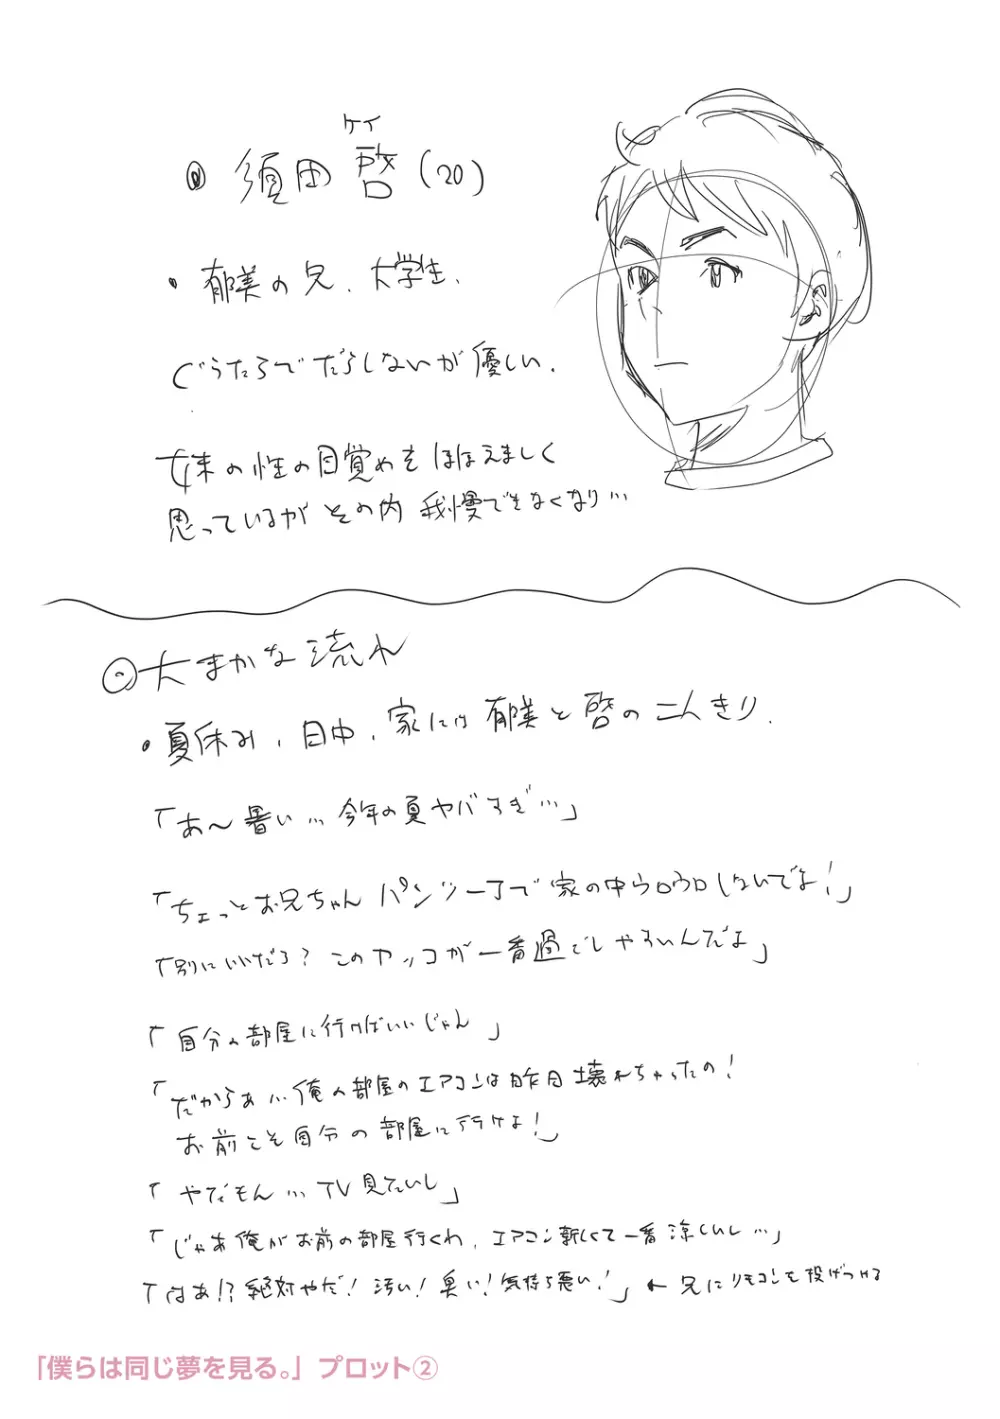 ケイ
◎ 須田 啓（20）
・郁美の兄、大学生。
ぐうたらでだらしないが優しい。
妹の性の目覚めをほほえましく
思っているがその内 我慢できなくなり…
◎大まかな流れ
・夏休み、日中、家には郁美と啓の二人きり。
「あ～暑い… 今年の夏ヤバすぎ…」
「ちょっとお兄ちゃん パンツ一丁で家の中ウロウロしないでよ！」
「別にいいだろ？このカッコが一番過ごしやすいんだよ」
「自分の部屋に行けばいいじゃん」
「だからぁ… 俺の部屋のエアコンは昨日壊れちゃったの！
お前こそ自分の部屋に行けよ！」
「やだもん… TV見たいし」
「じゃあ俺がお前の部屋行くわ、エアコン新しくて一番涼しいし…」
「はあ！？絶対やだ！汚い！臭い！気持ち悪い！」← 兄にリモコンを投げつける
「僕らは同じ夢を見る。」プロット②